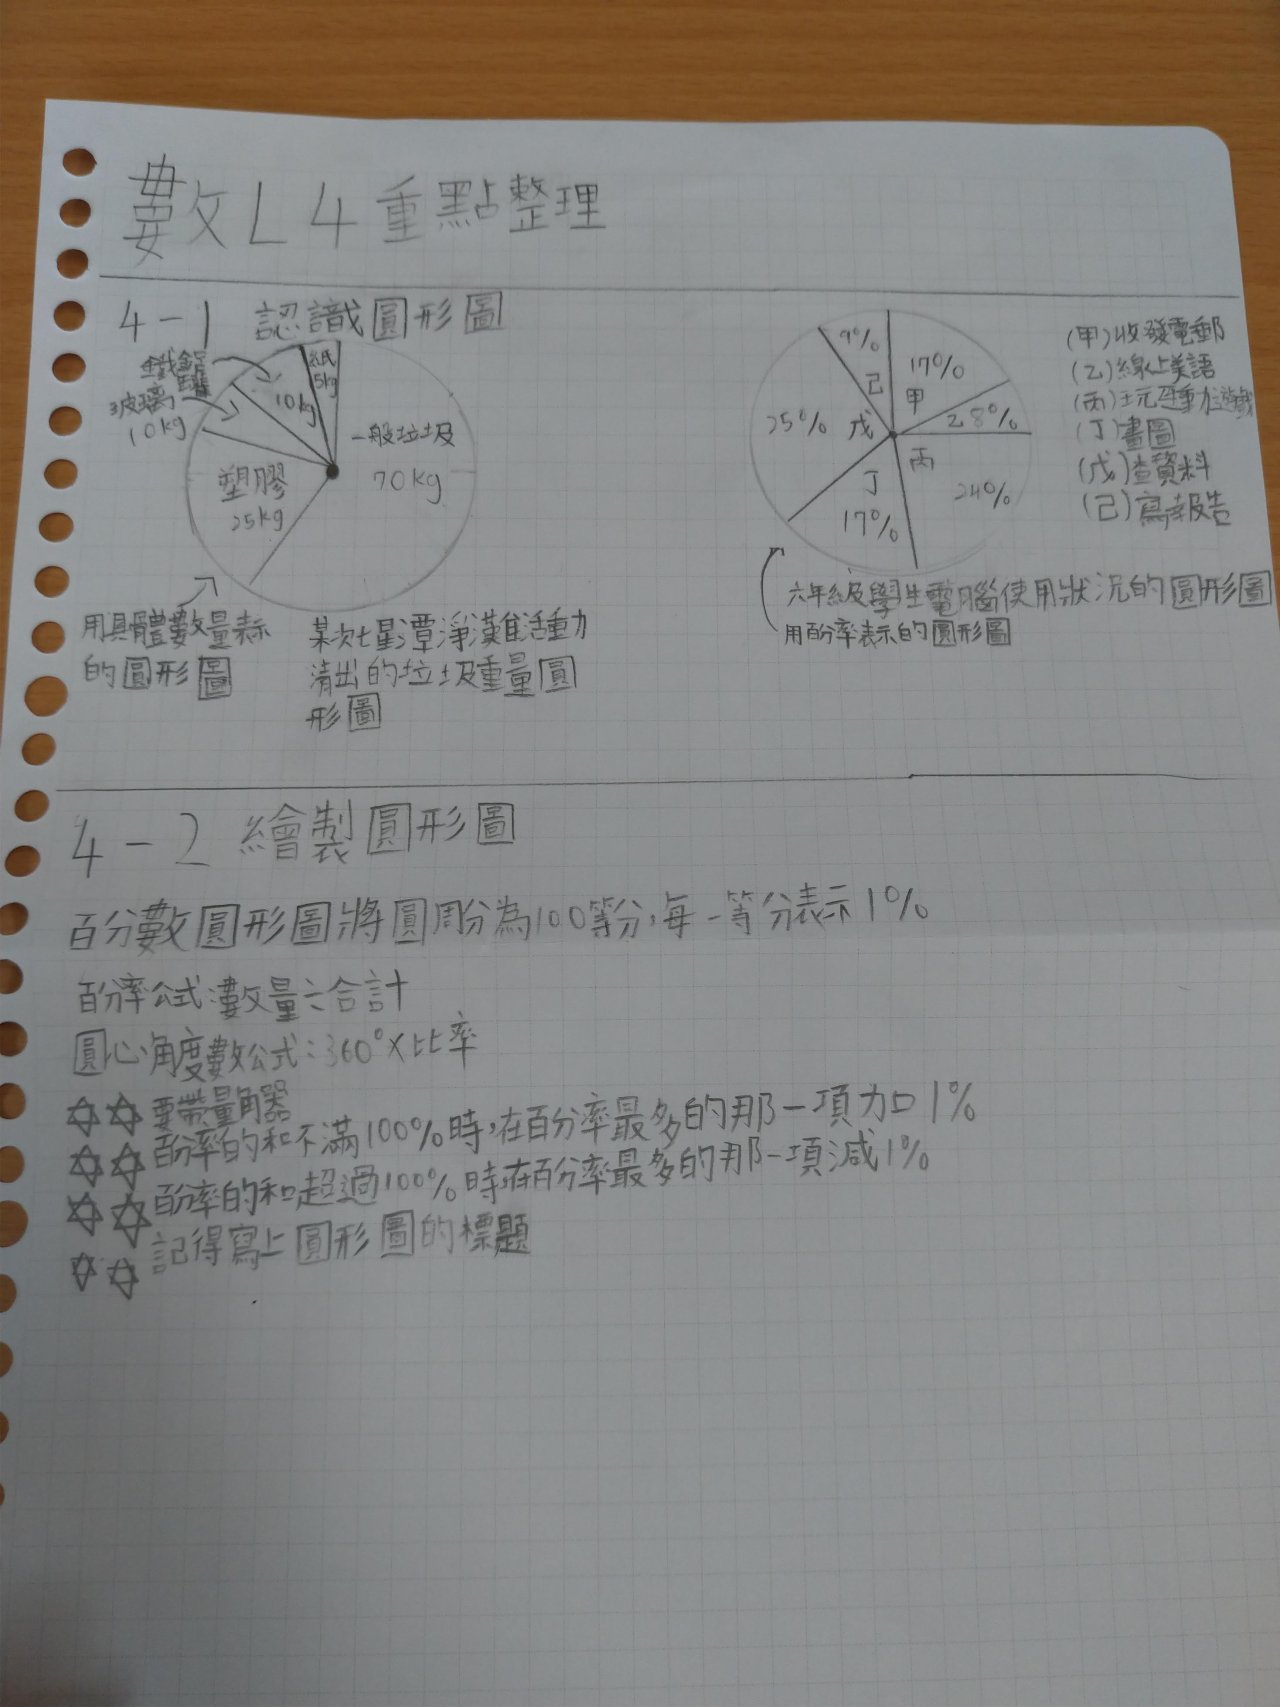 數L4重點整理
4-1 認識圓形圖
鐵鋁罐
玻璃
10kg
10kg
紙
5kg
一般垃圾
70kg
塑膠
25kg
用具體數量表示
的圓形圖
某次七星潭淨灘活動
清出的垃圾重量圓
形圖
9%
己
17%
甲
乙8%
25% 戊
丙
24%
丁
17%
(甲)收發電郵
(乙)線上美語
(丙)玩互動遊戲
(丁)畫圖
(戊)查資料
(己)寫報告
六年級學生電腦使用狀況的圓形圖
用百分率表示的圓形圖
4-2 繪製圓形圖
百分數圓形圖將圓周分為100等分,每一等分表示1%
百分率公式:數量÷合計
圓心角度數公式:360°×比率
要帶量角器
百分率的和不滿100%時,在百分率最多的那一項加1%
百分率的和超過100%時,在百分率最多的那一項減1%
記得寫上圓形圖的標題